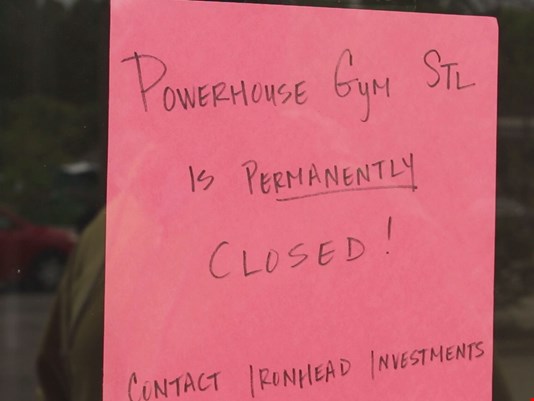 POWERHOUSE GYM STL
IS PERMANENTLY
CLOSED!
CONTACT IRONHEAD INVESTMENTS